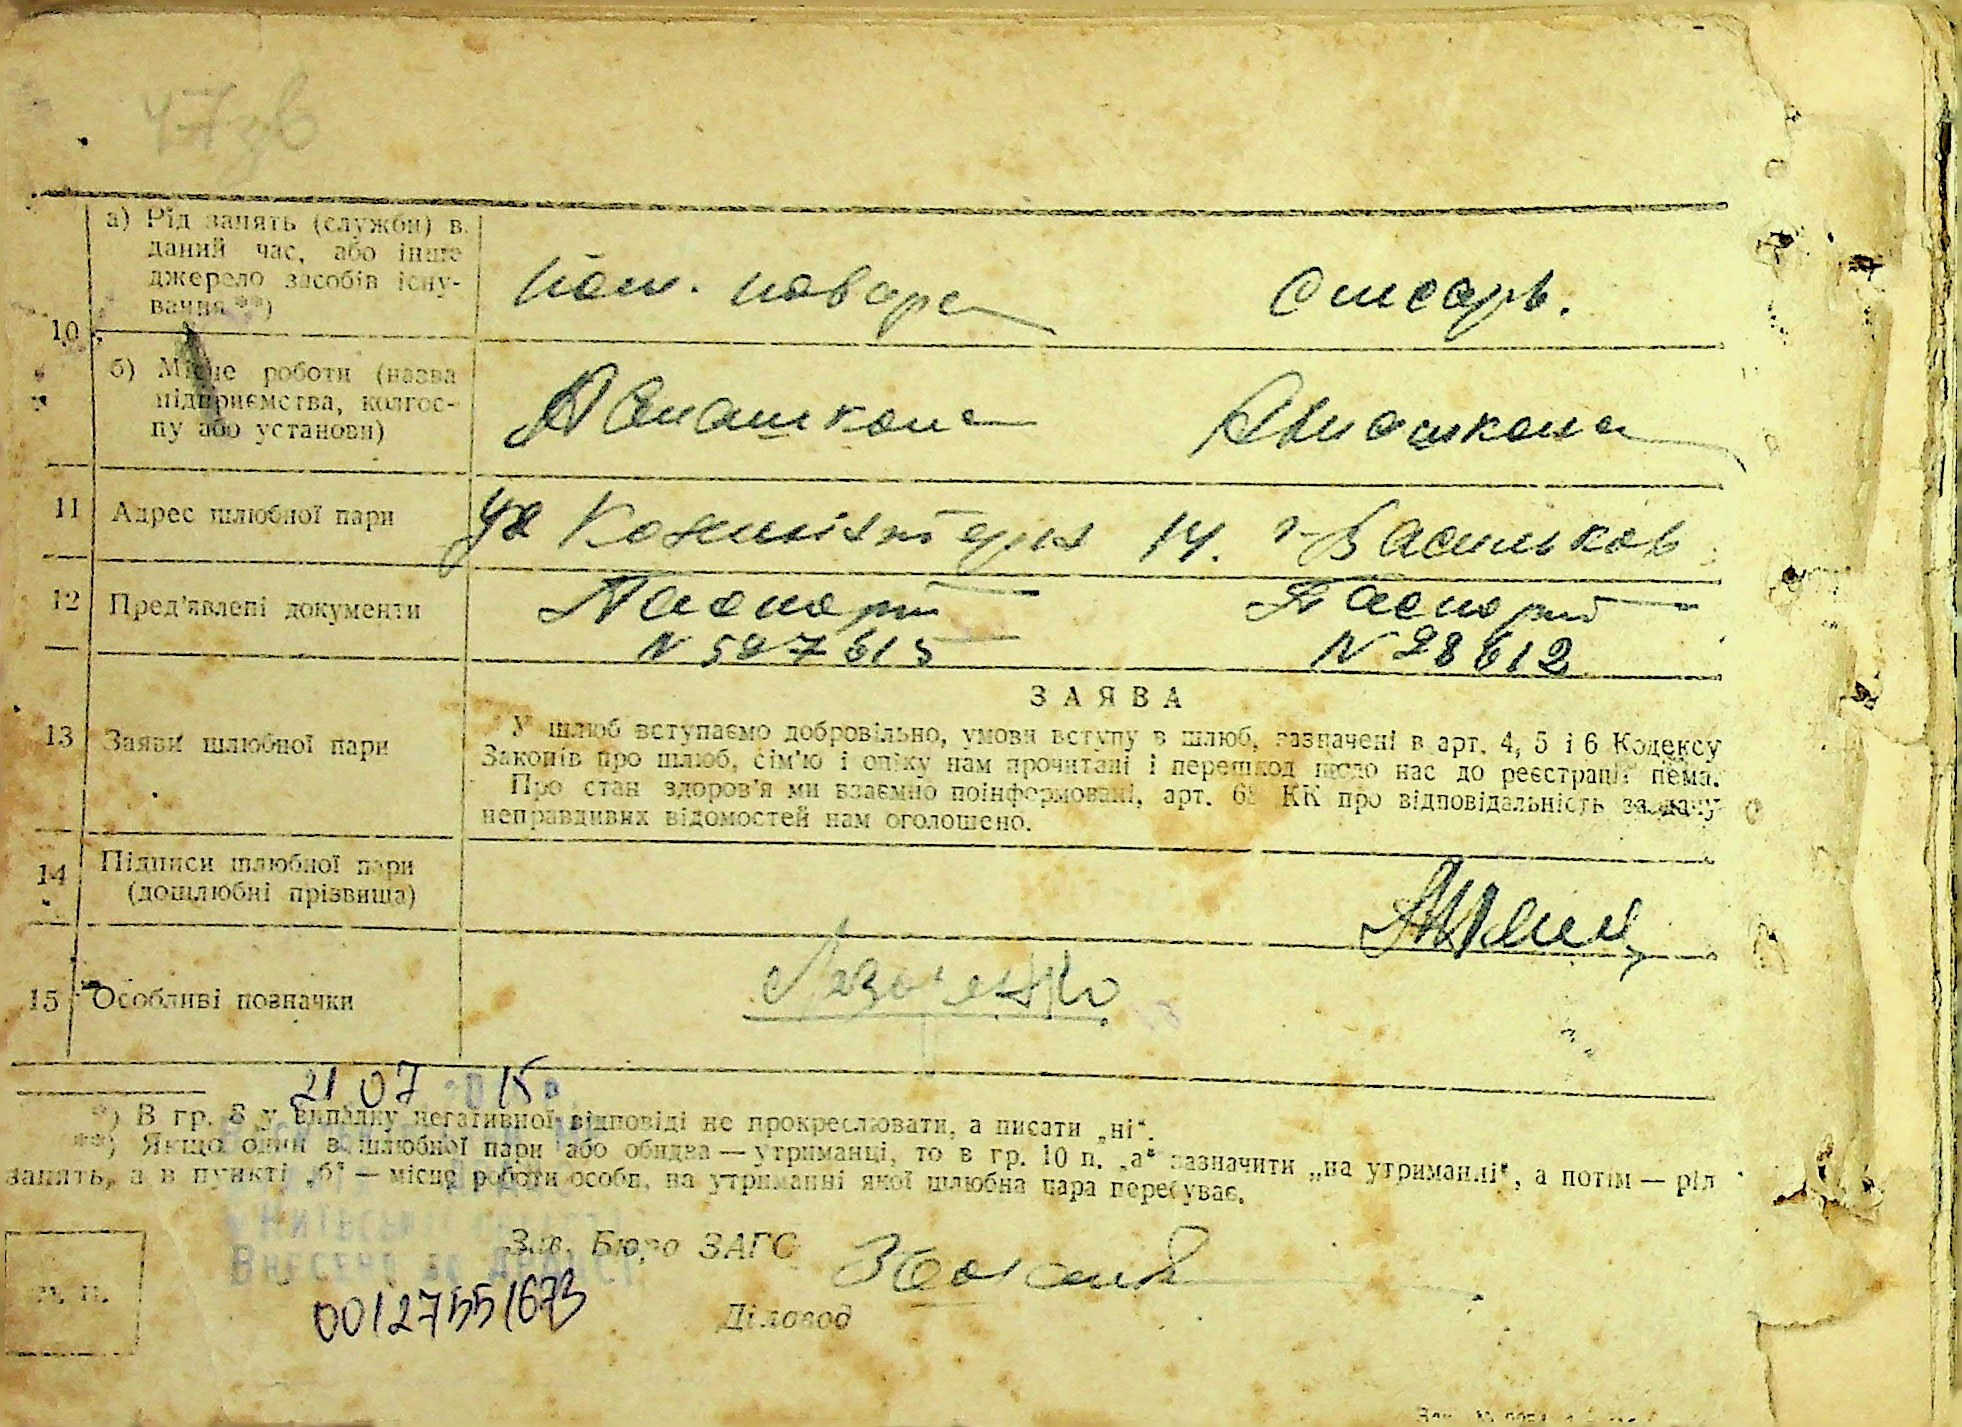 47зв
а) Рід занять (служби) в
даний час, або інше
джерело засобів існу-
вання **)
пом. повара
слесарь.
10
б) Місце роботи (назва
підприємства, колгос-
пу або установи)
Авиашкола
Авиашкола
11 Адрес шлюбної пари
ул 14. г. Васильков
12 Пред'явлені документи
Паспорт
Паспорт
N 527615
N 28612
ЗАЯВА
13 Заяви шлюбної пари
У шлюб вступаємо добровільно, умови вступу в шлюб, зазначені в арт. 4, 5 і 6 Кодексу
Законів про шлюб, сім'ю і опіку нам прочитані і перешкод щодо нас до реєстрації нема.
Про стан здоров'я ми взаємно поінформовані, арт. 68 КК про відповідальність за дачу
неправдивих відомостей нам оголошено.
14 Підписи шлюбної пари
(дошлюбні прізвища)
15 Особливі позначки
21 07 2015
*) В гр. 8 у випадку негативної відповіді не прокреслювати, а писати „ні“.
**) Якщо один з шлюбної пари або обидва — утриманці, то в гр. 10 п. „а“ зазначити „на утриманні“, а потім — рід
занять, а в пункті „б“ — місце роботи особи, на утриманні якої шлюбна пара перебуває.
Зав. Бюро ЗАГС
Внесено до ДРАЦСГ
00127551673
М. П.
Діловод